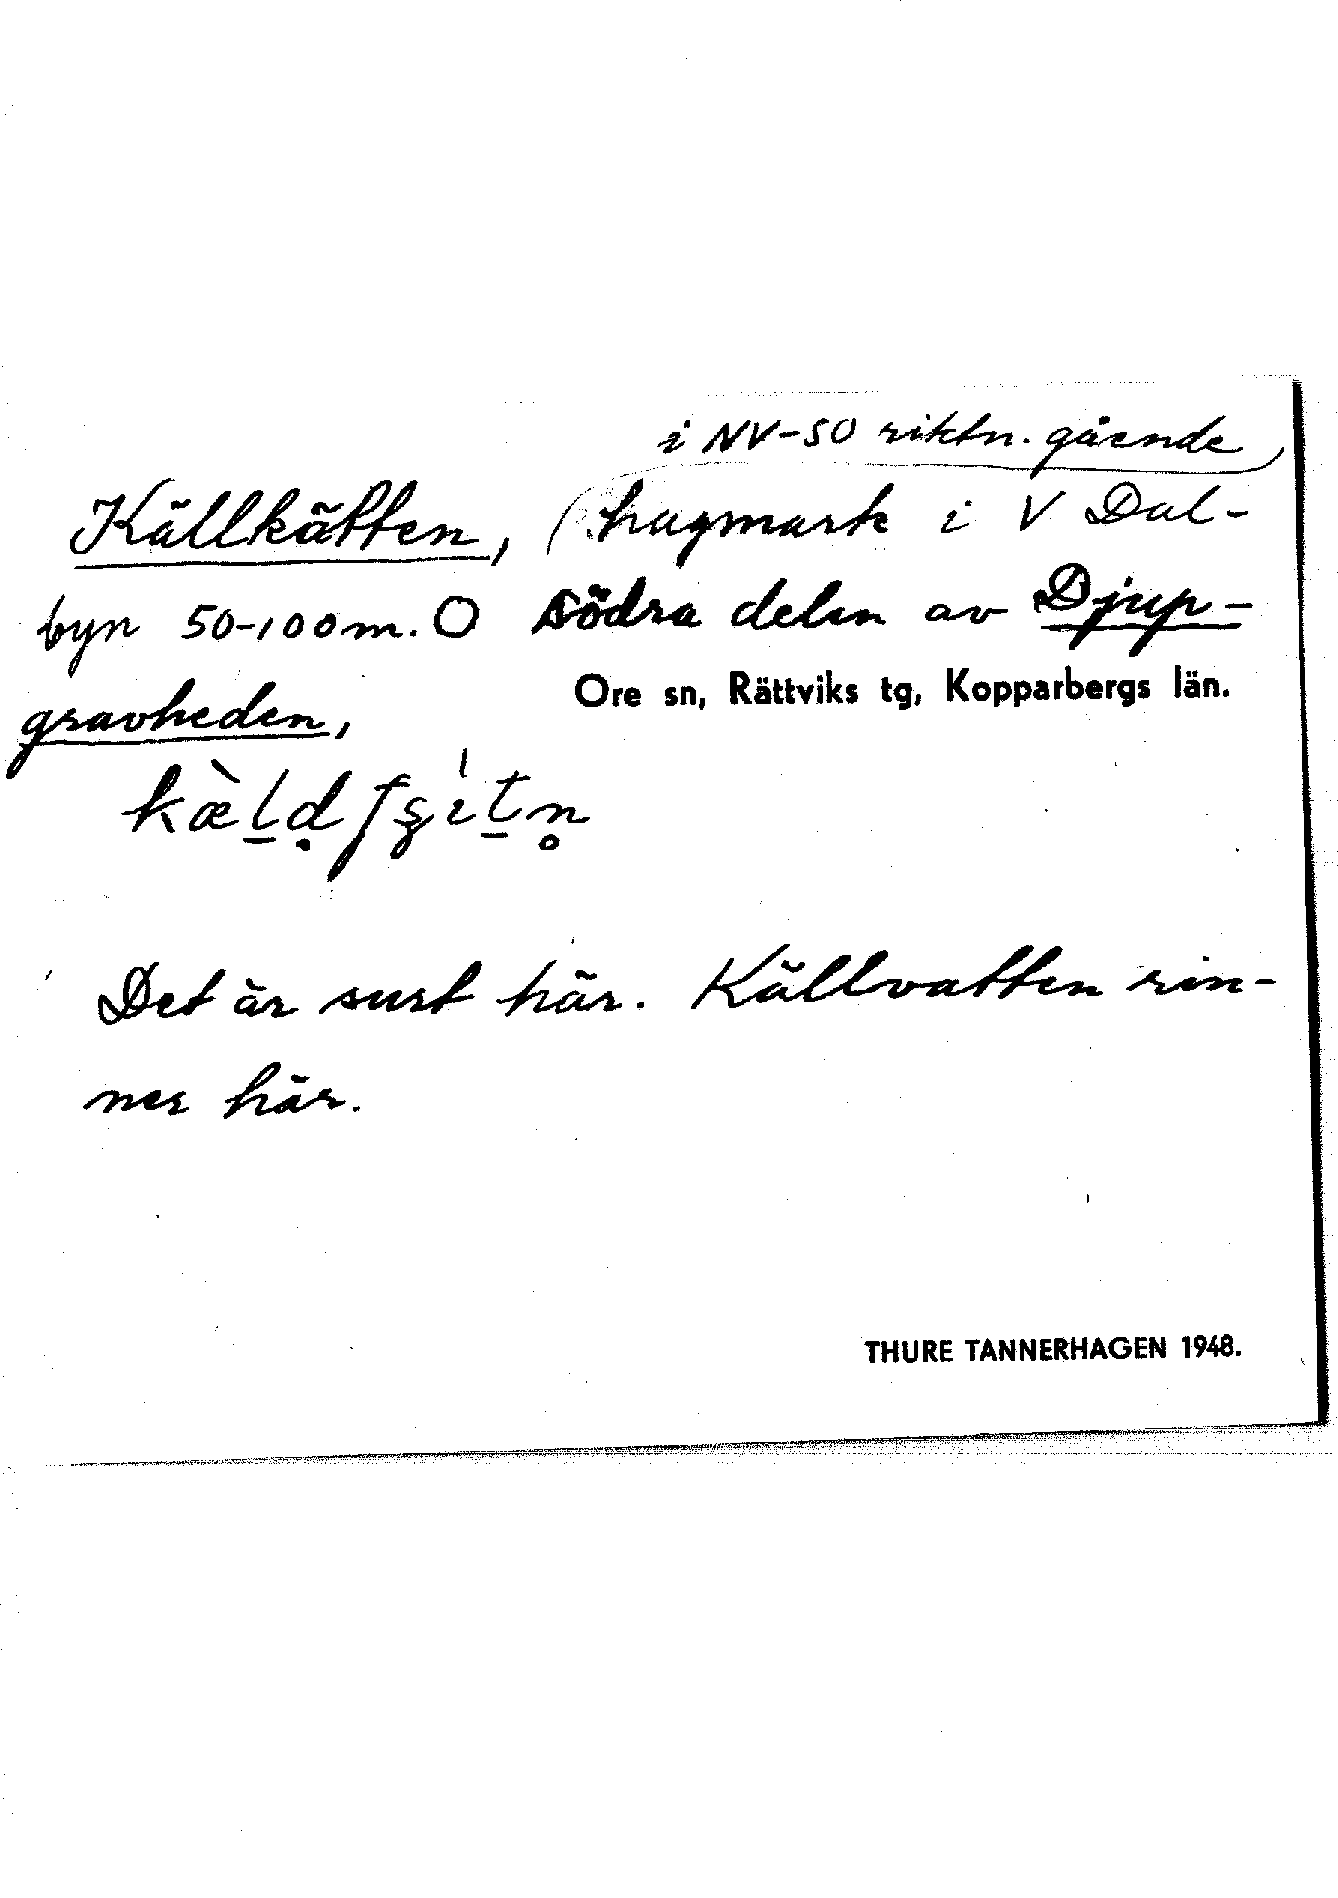 i NV-SO riktn. gående
Källkätten, hagmark i V Dal-
byn 50-100 m. O södra delen av Djup-
Ore sn, Rättviks tg, Kopparbergs län.
gravheden,
Det är surt här. Källvatten rin-
ner här.
THURE TANNERHAGEN 1948.